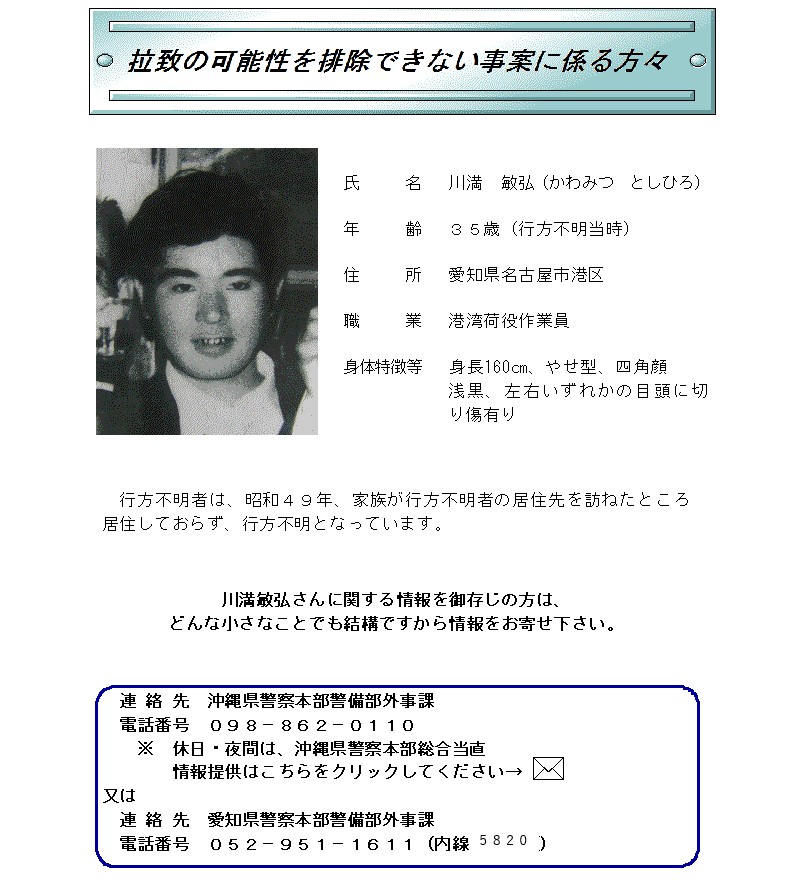 拉致の可能性を排除できない事案に係る方々
氏　　名　川満　敏弘（かわみつ　としひろ）
年　　齢　３５歳（行方不明当時）
住　　所　愛知県名古屋市港区
職　　業　港湾荷役作業員
身体特徴等　身長160㎝、やせ型、四角顔
浅黒、左右いずれかの目頭に切
り傷有り
行方不明者は、昭和４９年、家族が行方不明者の居住先を訪ねたところ
居住しておらず、行方不明となっています。
川満敏弘さんに関する情報を御存じの方は、
どんな小さなことでも結構ですから情報をお寄せ下さい。
連 絡 先　沖縄県警察本部警備部外事課
電話番号　０９８－８６２－０１１０
※　休日・夜間は、沖縄県警察本部総合当直
情報提供はこちらをクリックしてください→
又は
連 絡 先　愛知県警察本部警備部外事課
電話番号　０５２－９５１－１６１１（内線 5820 ）